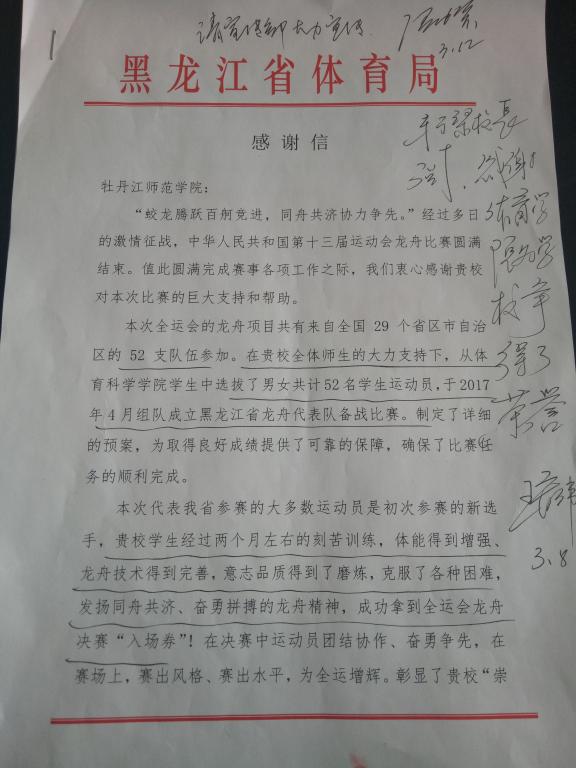 请宣传部大力宣传.
3.12
黑龙江省体育局
感谢信
牡丹江师范学院：
“蛟龙腾跃百舸竞进，同舟共济协力争先。”经过多日
的激情征战，中华人民共和国第十三届运动会龙舟比赛圆满
结束。值此圆满完成赛事各项工作之际，我们衷心感谢贵校
对本次比赛的巨大支持和帮助。
本次全运会的龙舟项目共有来自全国 29 个省区市自治
区的 52 支队伍参加。在贵校全体师生的大力支持下，从体
育科学学院学生中选拔了男女共计52名学生运动员，于2017
年4月组队成立黑龙江省龙舟代表队备战比赛。制定了详细
的预案，为取得良好成绩提供了可靠的保障，确保了比赛任
务的顺利完成。
本次代表我省参赛的大多数运动员是初次参赛的新选
手，贵校学生经过两个月左右的刻苦训练，体能得到增强、
龙舟技术得到完善，意志品质得到了磨炼，克服了各种困难，
发扬同舟共济、奋勇拼搏的龙舟精神，成功拿到全运会龙舟
决赛“入场券”！在决赛中运动员团结协作、奋勇争先，在
赛场上，赛出风格、赛出水平，为全运增辉。彰显了贵校“崇
校长
感谢
体育学
院为学
校争
得了
荣誉
3.8